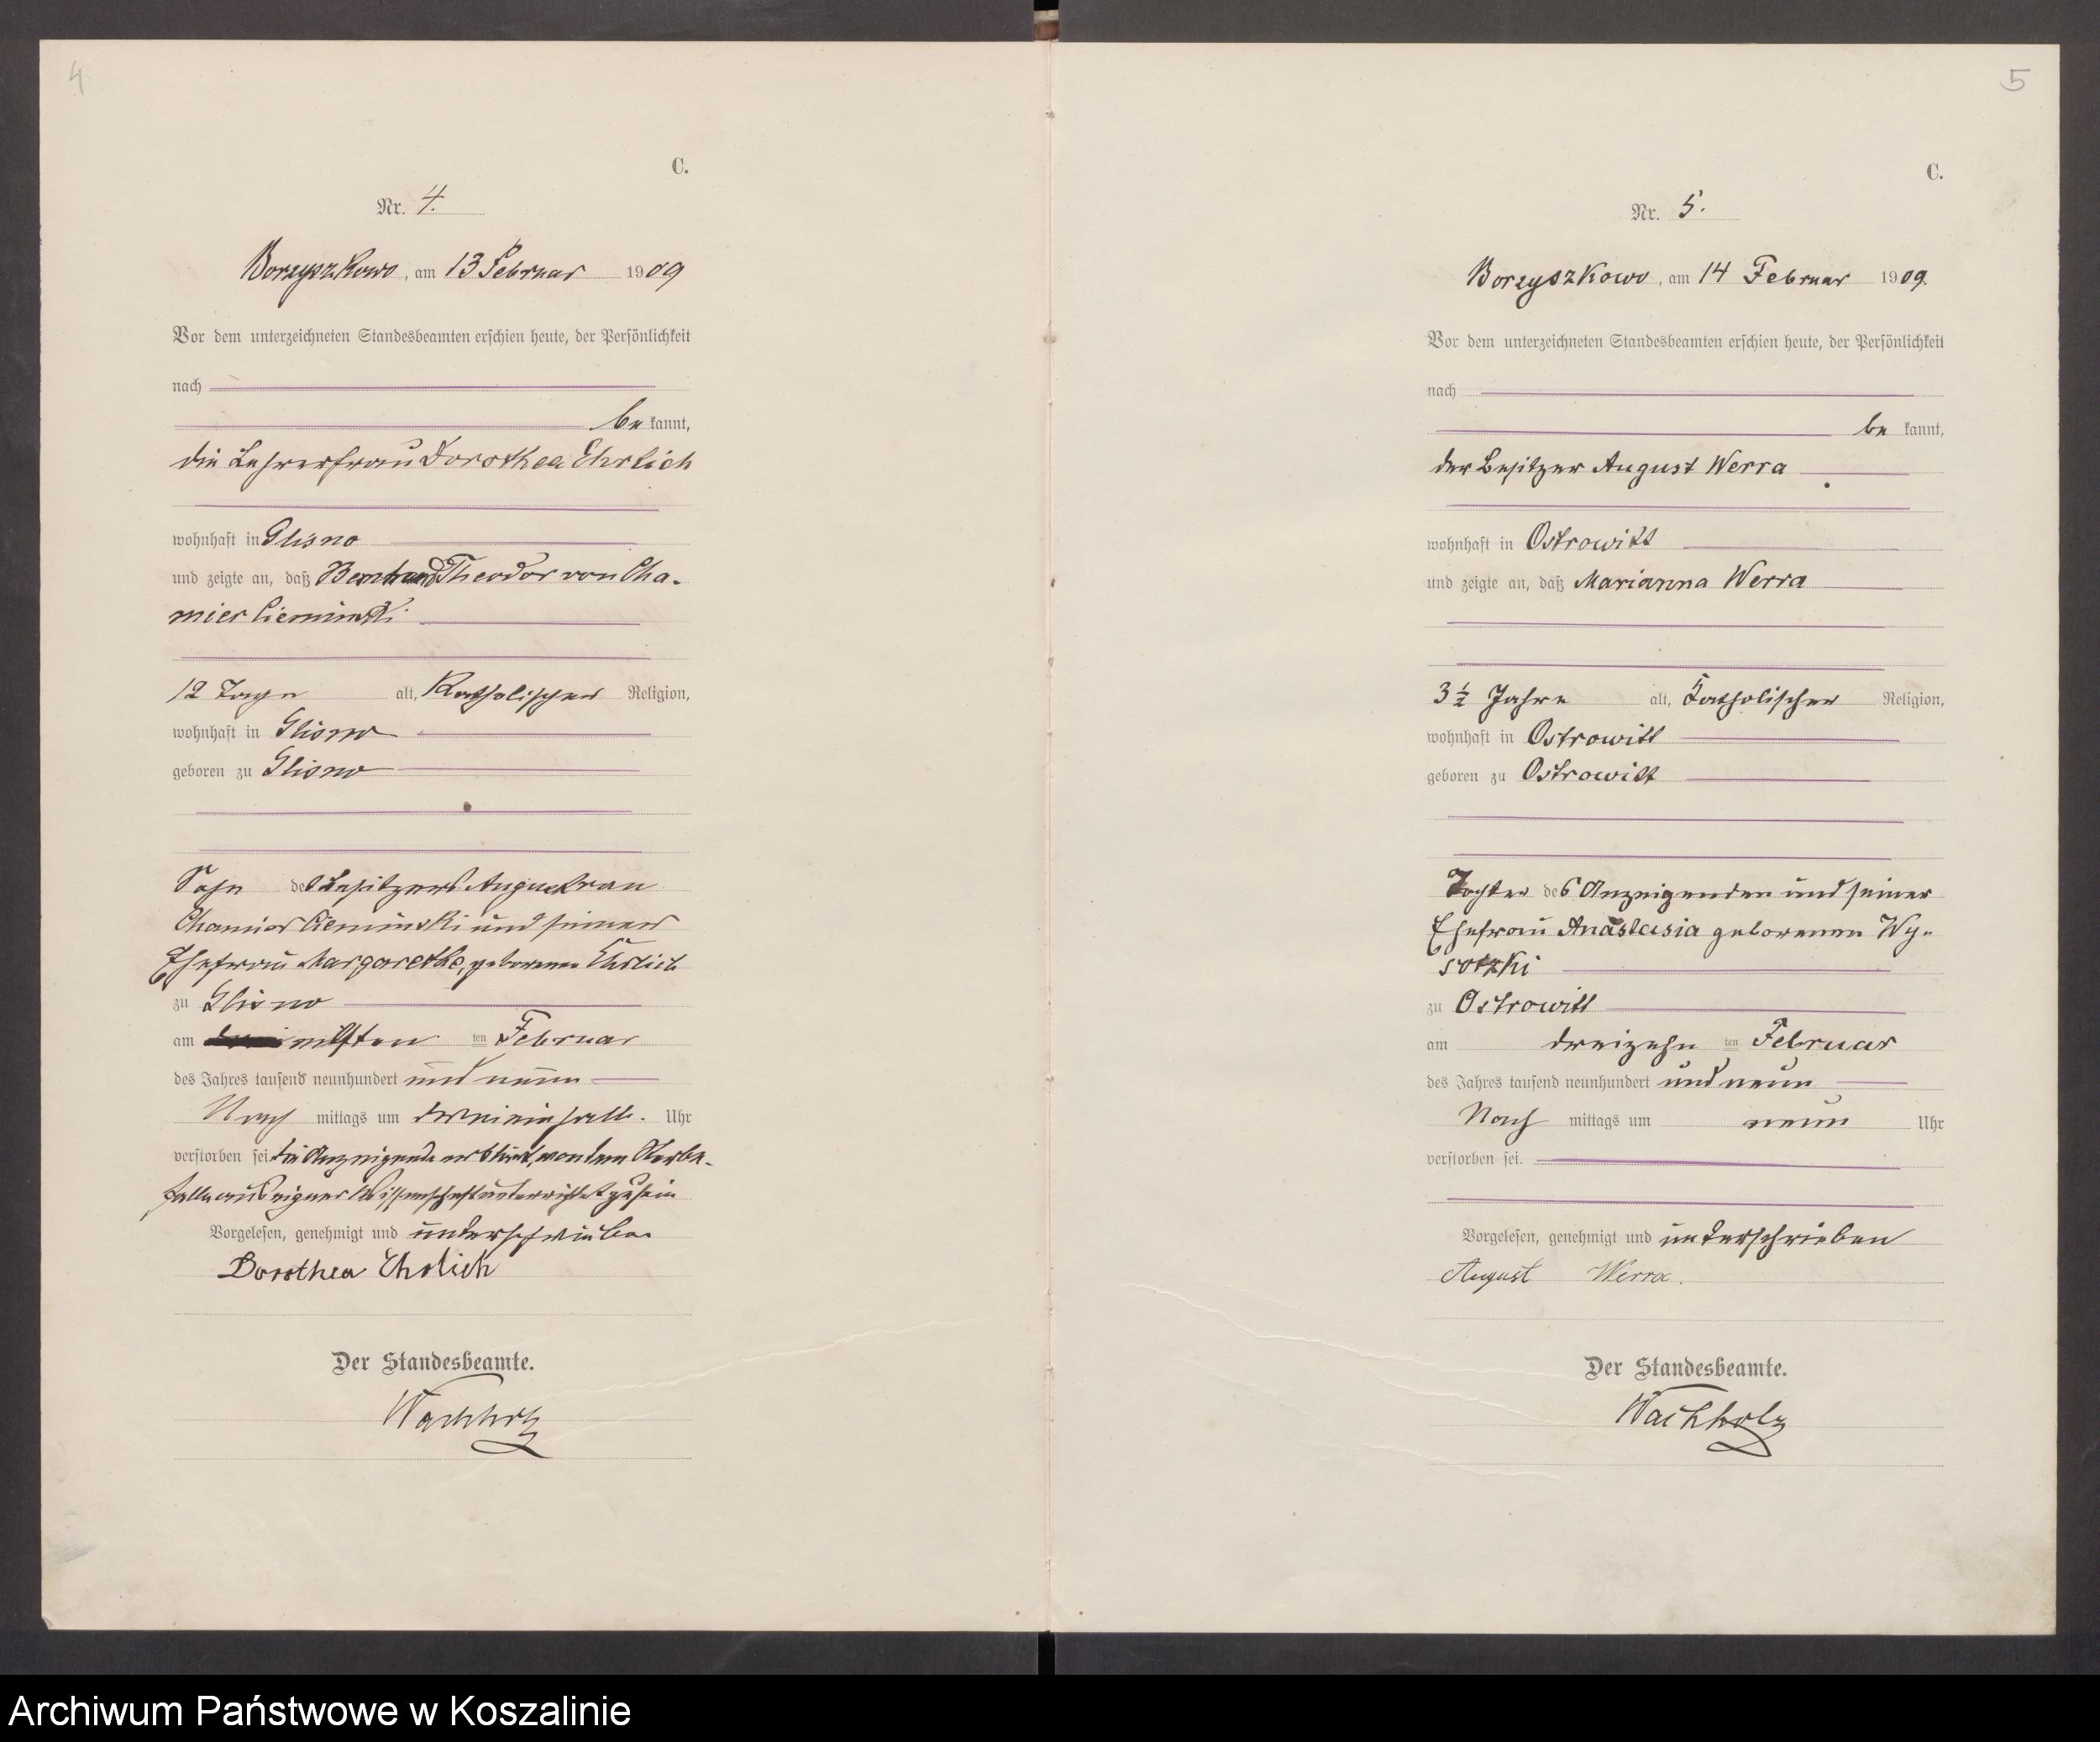 4
C.
Nr. 4.
Borzyszkowo, am 13 Februar 1909
Vor dem unterzeichneten Standesbeamten erschien heute, der Persönlichkeit
nach
be kannt,
die Lehrerfrau Dorothea Ehrlich
wohnhaft in Glisno
und zeigte an, daß Bernhard Theodor von Cha-
mier Cieminski
12 Tage alt, Katholischer Religion,
wohnhaft in Glisno
geboren zu Glisno
Sohn des Besitzers August von
Chamier Cieminski und seiner
Ehefrau Margarethe, geborenen Ehrlich
zu Glisno
am elften ten Februar
des Jahres tausend neunhundert und neun
Nach mittags um dreieinhalb Uhr
verstorben sei. die Anzeigende erklärt, von dem Sterbe-
falle aus eigner Wissenschaft unterrichtet zu sein
Vorgelesen, genehmigt und unterschrieben
Dorothea Ehrlich
Der Standesbeamte.
Wachholz
5
C.
Nr. 5.
Borzyszkowo, am 14 Februar 1909.
Vor dem unterzeichneten Standesbeamten erschien heute, der Persönlichkeit
nach
be kannt,
der Besitzer August Werra
wohnhaft in Ostrowitt
und zeigte an, daß Marianna Werra
3 1/2 Jahre alt, Katholischer Religion,
wohnhaft in Ostrowitt
geboren zu Ostrowitt
Tochter des Anzeigenden und seiner
Ehefrau Anastasia geborenen Wy-
sotzki
zu Ostrowitt
am dreizehn ten Februar
des Jahres tausend neunhundert und neun
Nach mittags um neun Uhr
verstorben sei.
Vorgelesen, genehmigt und unterschrieben
August Werra.
Der Standesbeamte.
Wachholz
Archiwum Państwowe w Koszalinie